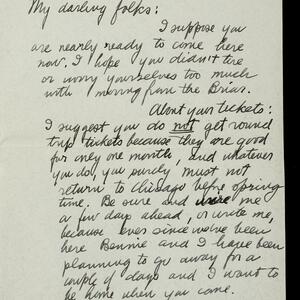 My darling folks:
I suppose you
are nearly ready to come here
now. I hope you didn't tire
or worry yourselves too much
with moving from the Briar.
About your tickets:
I suggest you do not get round
trip tickets because they are good
for only one month, and whatever
you do, you surely must not
return to Chicago before spring
time. Be sure and wire me
a few days ahead, or write me,
because ever since we've been
here Bennie and I have been
planning to go away for a
couple of days and I want to
be home when you come.